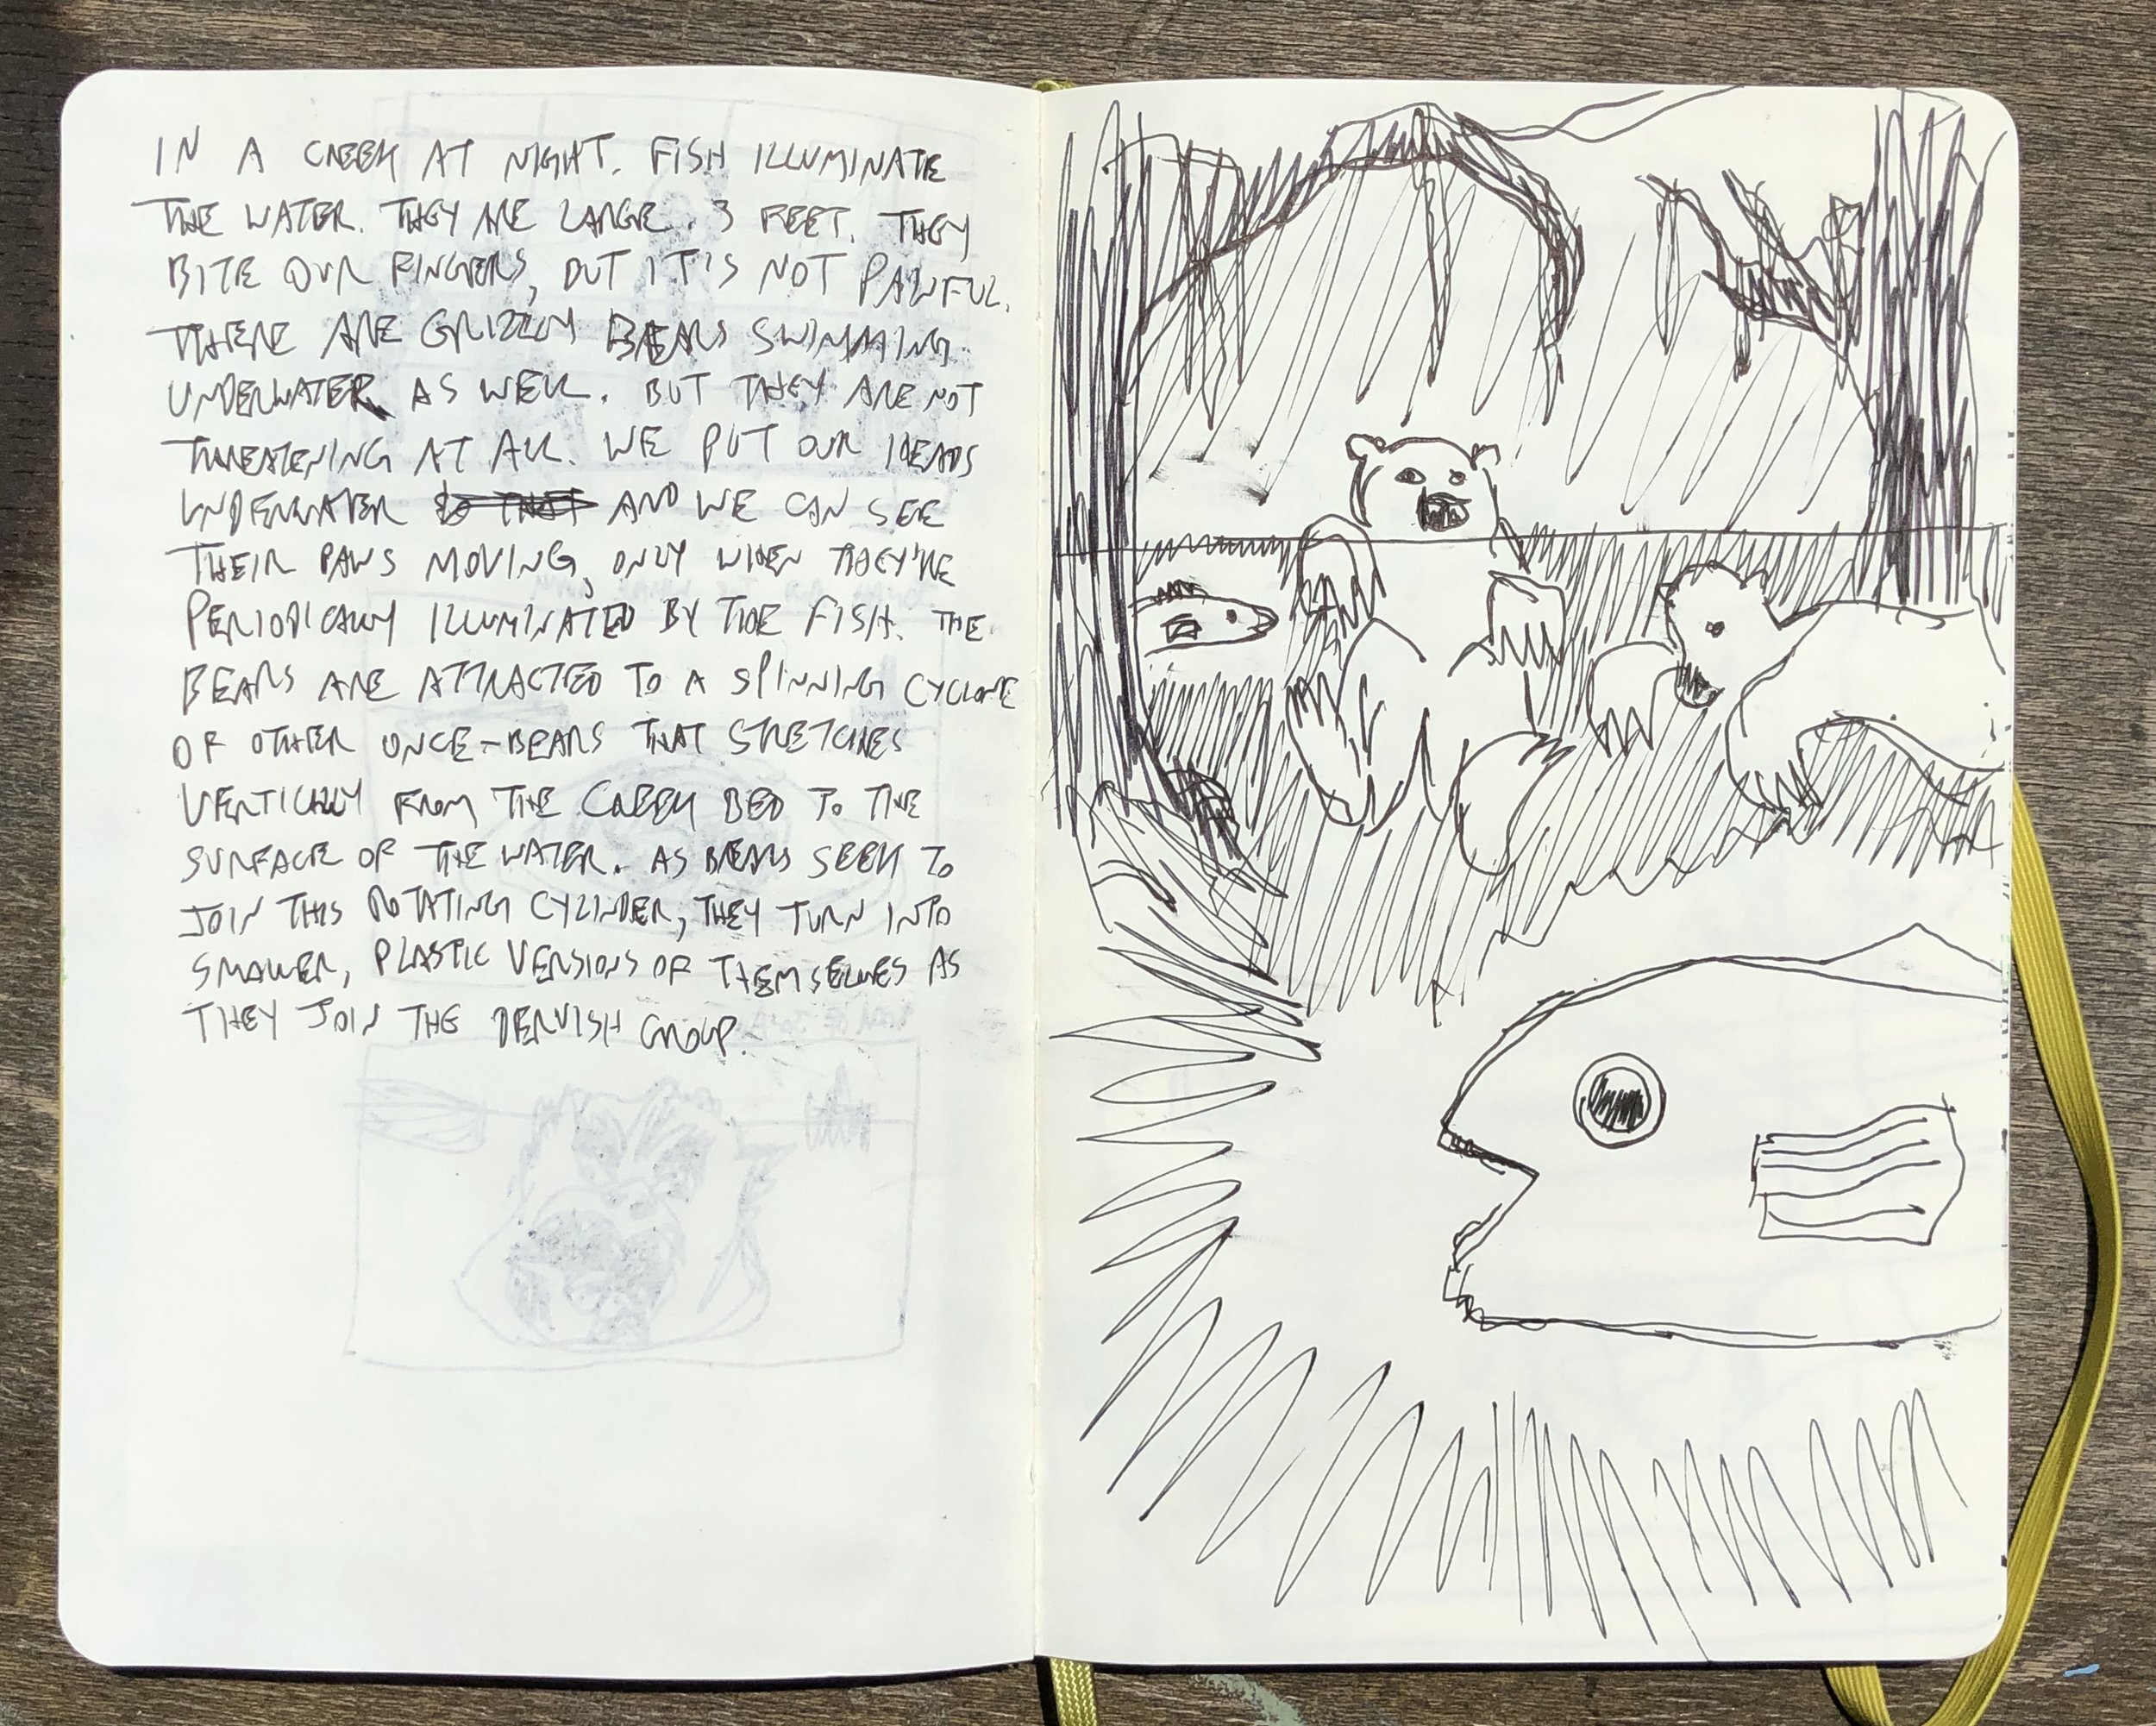 IN A CREEK AT NIGHT. FISH ILLUMINATE
THE WATER. THEY ARE LARGE. 3 FEET. THEY
BITE OUR FINGERS, BUT IT'S NOT PAINFUL.
THERE ARE GRIZZLY BEARS SWIMMING
UNDERWATER AS WELL. BUT THEY ARE NOT
THREATENING AT ALL. WE PUT OUR HEADS
UNDERWATER SO THAT AND WE CAN SEE
THEIR PAWS MOVING, ONLY WHEN THEY'RE
PERIODICALLY ILLUMINATED BY THE FISH. THE
BEARS ARE ATTRACTED TO A SPINNING CYCLONE
OF OTHER ONCE-BEARS THAT STRETCHES
VERTICALLY FROM THE CREEK BED TO THE
SURFACE OF THE WATER. AS BEARS SEEK TO
JOIN THIS ROTATING CYLINDER, THEY TURN INTO
SMALLER, PLASTIC VERSIONS OF THEMSELVES AS
THEY JOIN THE DERVISH GROUP.